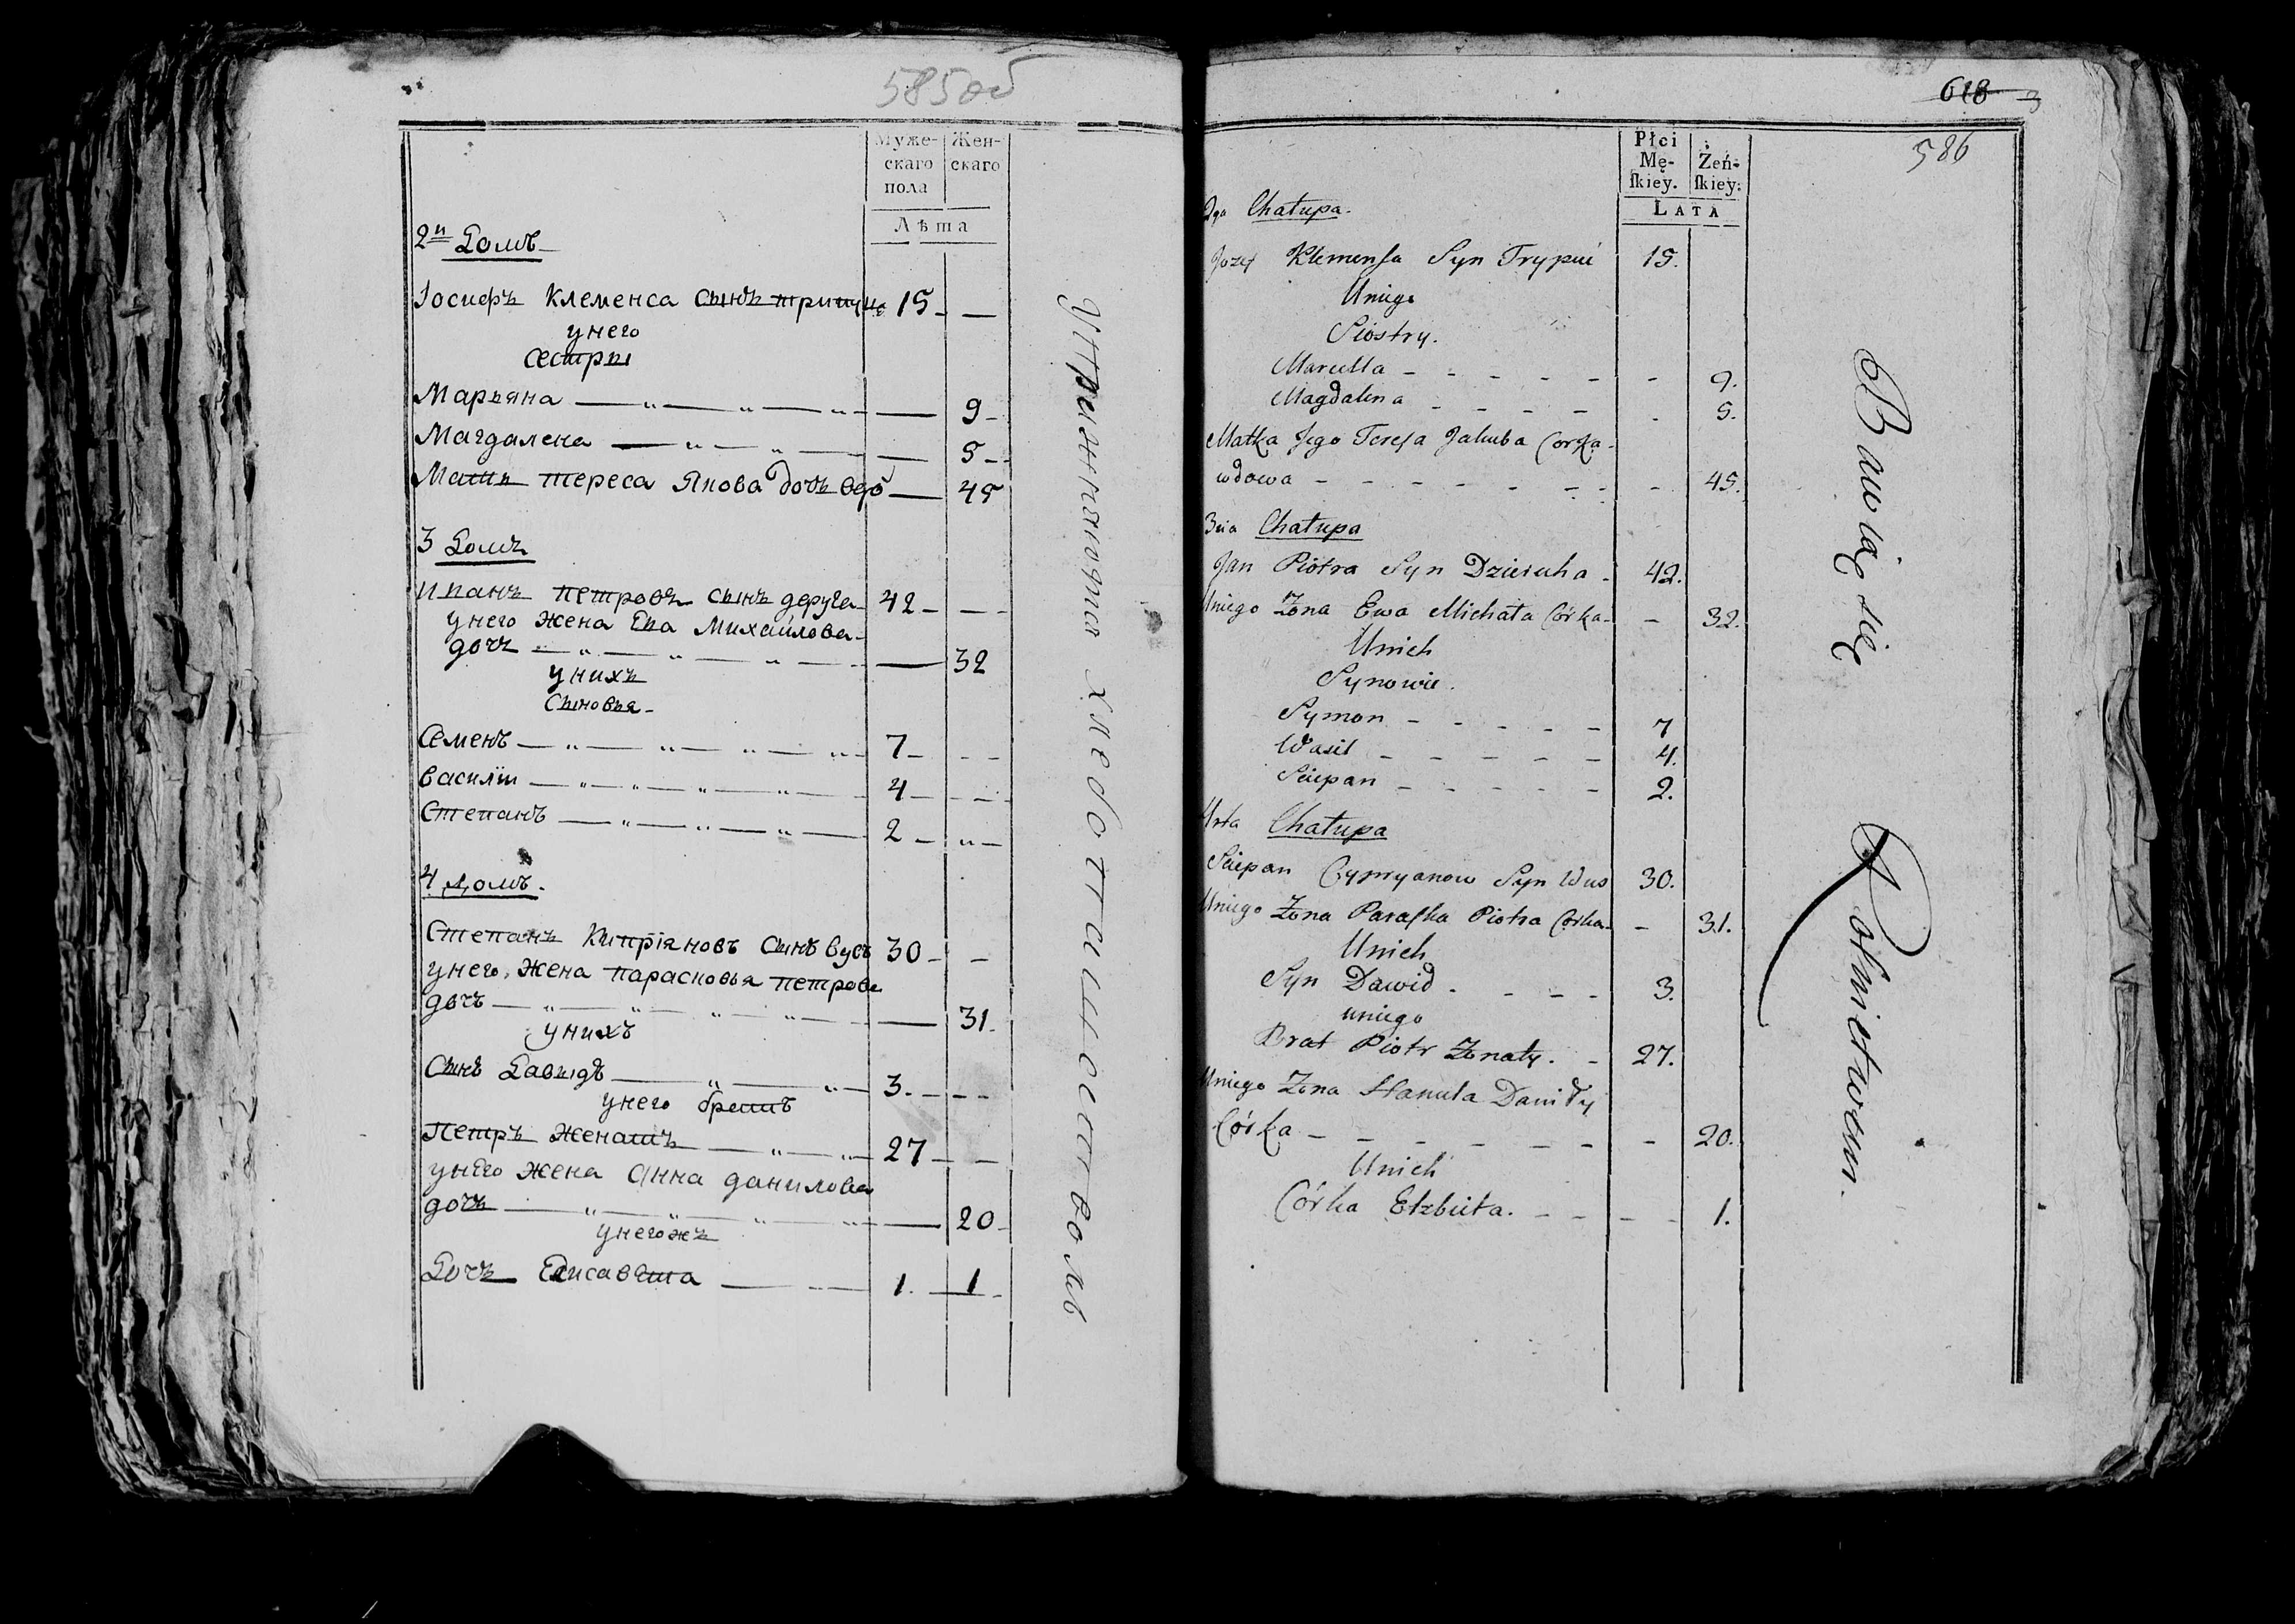 585об
Муже-
скаго
пола
Жен-
скаго
Лѣта
2й Домъ
Іосифъ Клеменса сынъ 15 —
унего
сестры
Марьяна — " — " — " — — 9 —
Магдалена — " — " — — 5 —
Мать тереса Янова дочь вдо — 45
3 Домъ
Иванъ петровъ сынъ деруга 42 — —
унего жена Ева Михайлова
дочь — " — " — " — — 32
унихъ
Сыновья
Семенъ — " — " — " — " — 7 — — —
василій — " — " — " — " — 4 — — —
Степанъ — " — " — " — 2 — " —
4 домъ.
Степанъ Кипріяновъ сынъ вусъ 30 — —
унего жена парасковья петрова
дочь — " — " — " — " — — 31.
унихъ
Сынъ Давидъ — " — " — 3. — — —
унего братъ
Петръ женатъ — " — " — 27 — —
унего жена Анна данилова
дочь — " — " — " — " — — 20 —
унегожъ
Дочь Елисавета — — 1. — 1 —
Упражняются хлебопашествомъ
618
3
586
Płci
Mę-
skiey.
Żeń-
skiey.
LATA
2ga Chałupa.
Jozef Klemensa Syn 15.
Uniego
Siostry.
Marcella - - - - - - 9.
Magdalena - - - - - 5.
Matka Jego Teresa Jakuba Corka
wdowa - - - - - - - - 45.
3cia Chałupa
Jan Piotra Syn Dzieruha - 42.
Uniego Żona Ewa Michała Córka - - 32.
Unich
Synowie.
Symon - - - - - 7
Wasil - - - - - 4.
Sciepan - - - - - 2.
4rta Chałupa
Sciepan Cypryanow Syn Wus 30.
Uniego Żona Paraska Piotra Córka - - 31.
Unich
Syn Dawid . - - - 3.
uniego
Brat Piotr Żonaty. - 27.
Uniego Żona Hanula Daniły
Córka - - - - - - - 20.
Unich
Córka Elzbieta. - - - - 1.
Bawią się Rolnictwem.